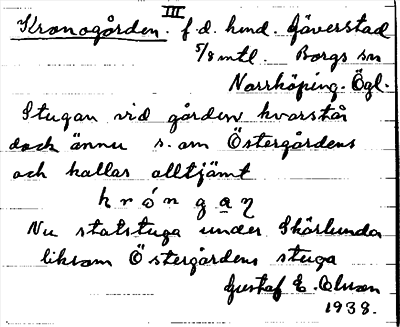 III
Kronogården. f.d. hmd. Gäverstad
5/8 mtl. Borgs sn
Norrköping. Ögl.
Stugan vid gården kvarstår
dock ännu s. om Östergårdens
och kallas alltjämt
krónga̲ŋ
Nu statstuga under Skärlunda
liksom Östergårdens stuga
Gustaf E. Olsson
1938.